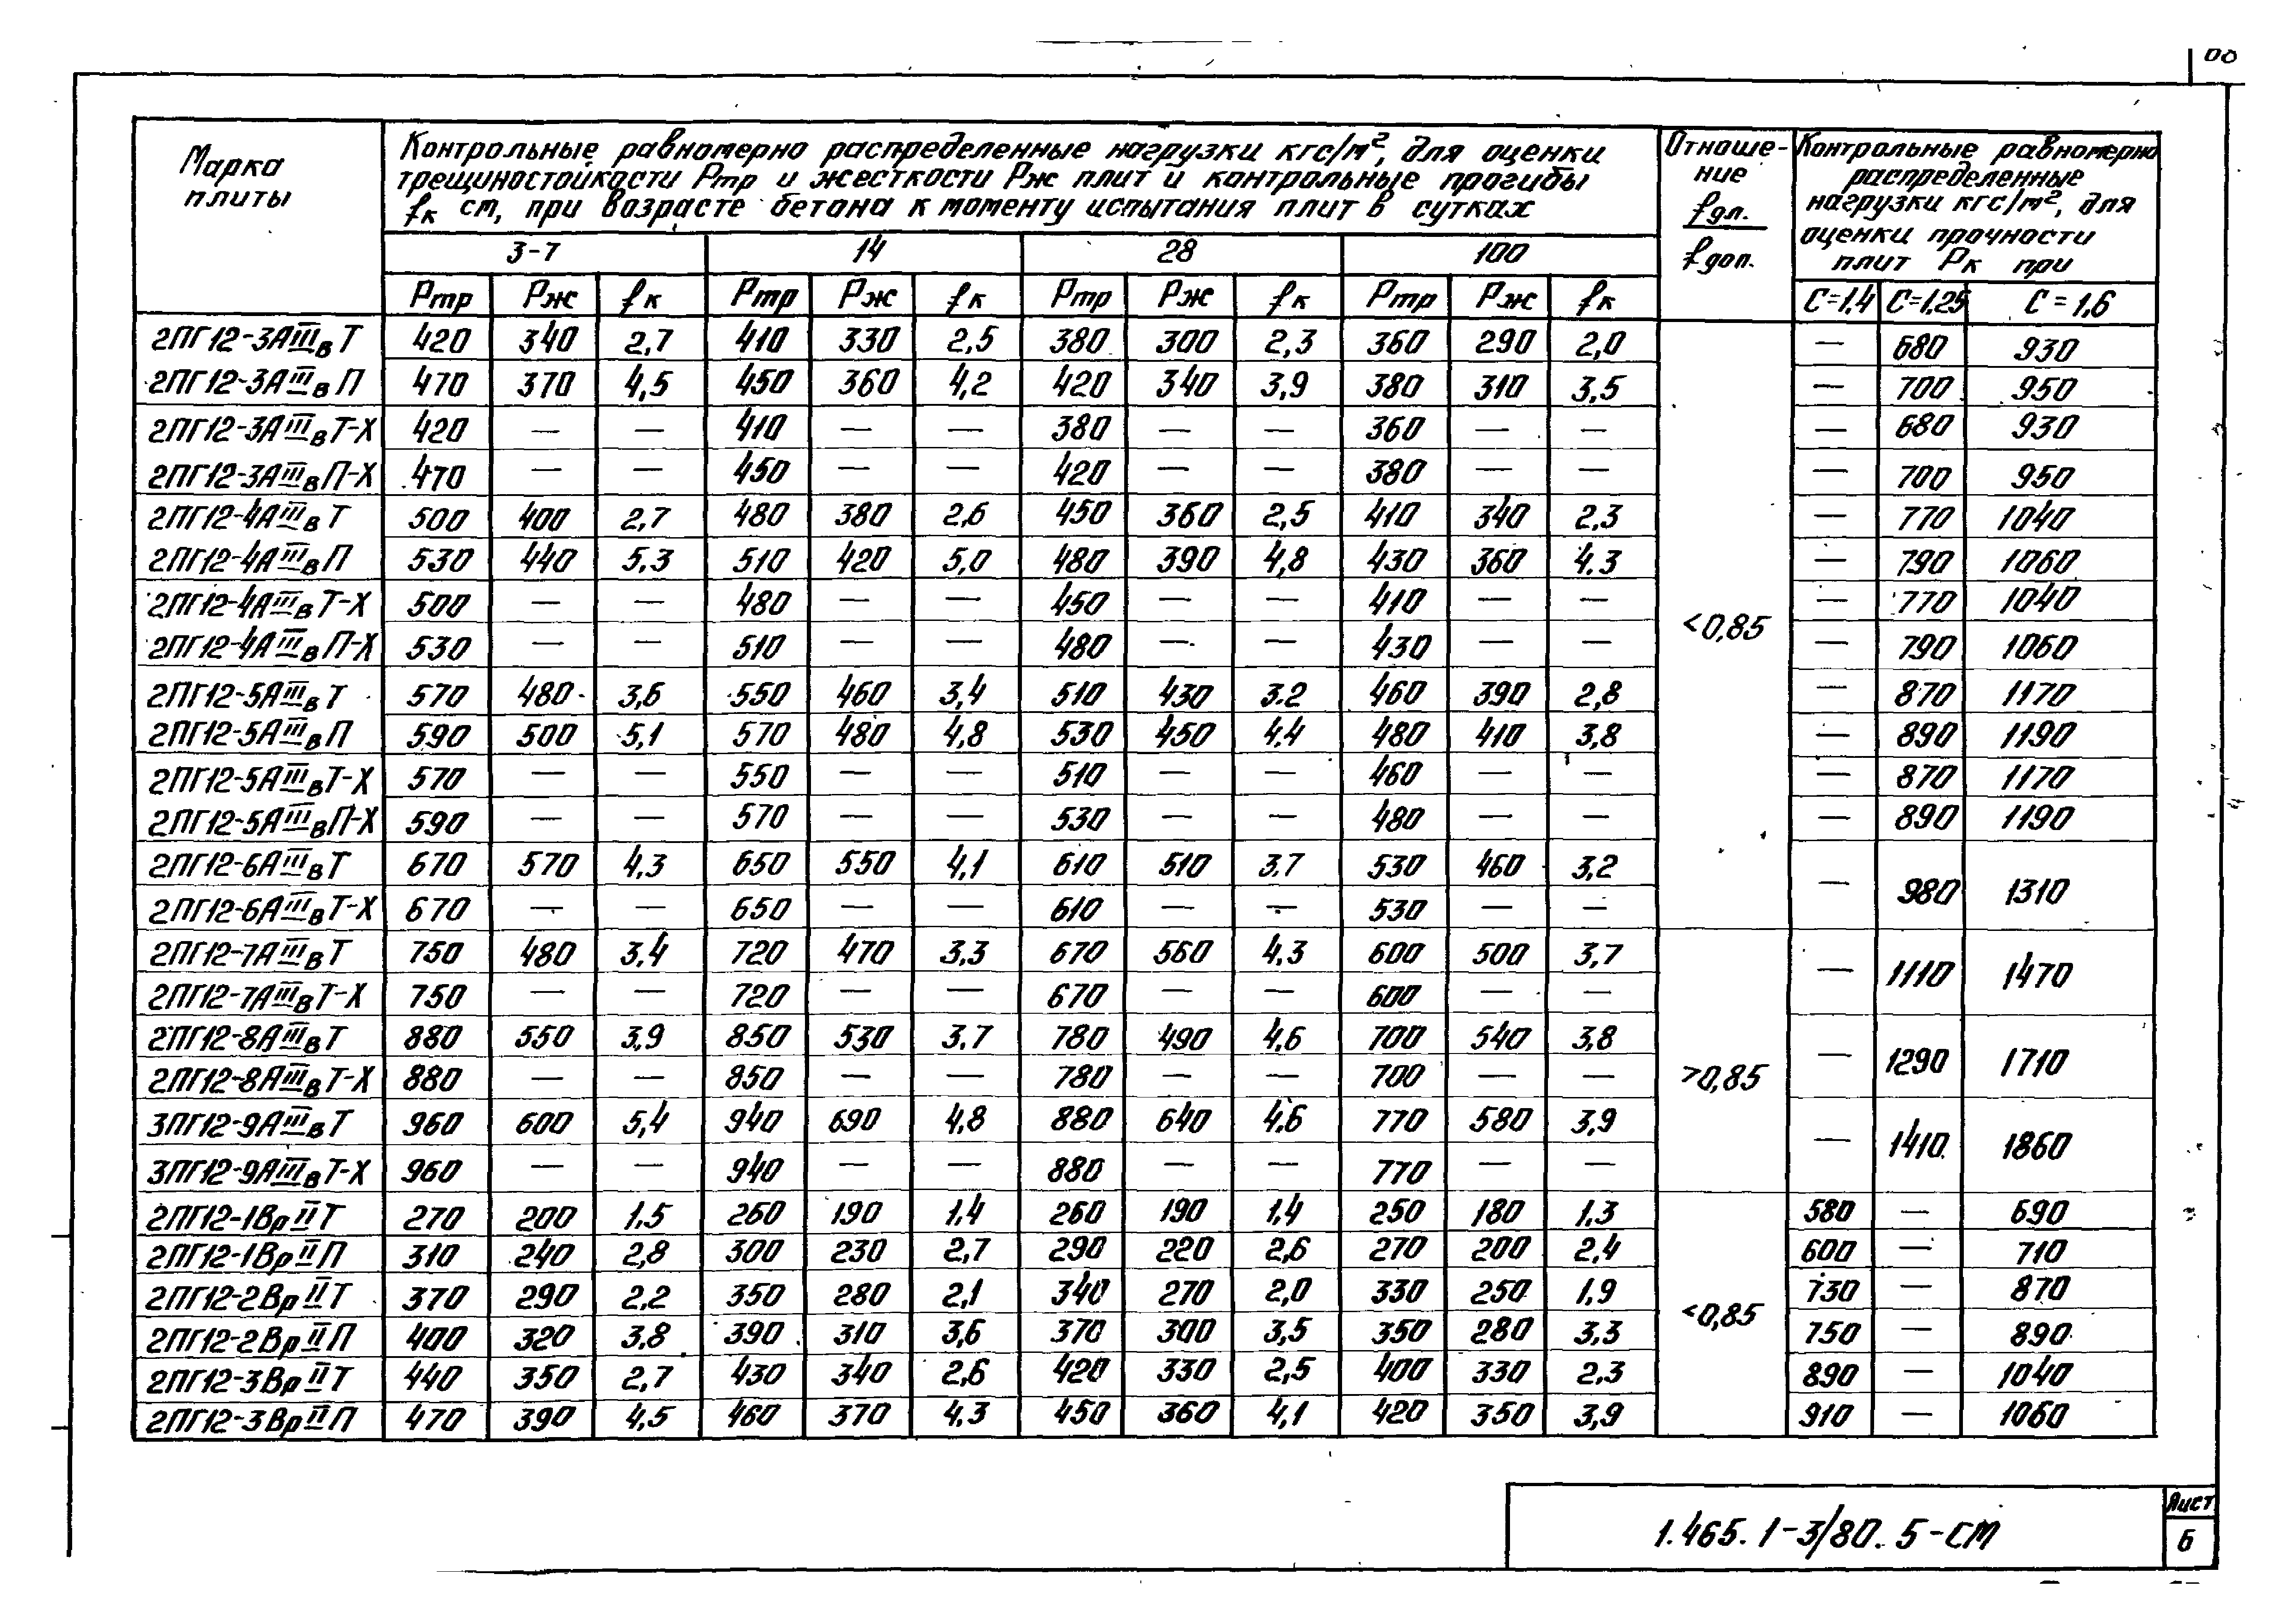 Марка плиты
Контрольные равномерно распределенные нагрузки кгс/м², для оценки
трещиностойкости Ртр и жесткости Рж плит и контрольные прогибы
fк см, при возрасте бетона к моменту испытания плит в сутках
Отноше-
ние
fдл.
fдоп.
Контрольные равномерно
распределенные
нагрузки кгс/м², для
оценки прочности
плит Рк при
3-7 14 28 100
Ртр Рж fк Ртр Рж fк Ртр Рж fк Ртр Рж fк С=1,4 С=1,25 С=1,6
2ПГ12-3АIIIвТ 420 340 2,7 410 330 2,5 380 300 2,3 360 290 2,0 — 680 930
2ПГ12-3АIIIвП 470 370 4,5 450 360 4,2 420 340 3,9 380 310 3,5 — 700 950
2ПГ12-3АIIIвТ-Х 420 — — 410 — — 380 — — 360 — — — 680 930
2ПГ12-3АIIIвП-Х 470 — — 450 — — 420 — — 380 — — — 700 950
2ПГ12-4АIIIвТ 500 400 2,7 480 380 2,6 450 360 2,5 410 340 2,3 — 770 1040
2ПГ12-4АIIIвП 530 440 5,3 510 420 5,0 480 390 4,8 430 360 4.3 — 790 1060
2ПГ12-4АIIIвТ-Х 500 — — 480 — — 450 — — 410 — — — 770 1040
2ПГ12-4АIIIвП-Х 530 — — 510 — — 480 — — 430 — — <0,85 — 790 1060
2ПГ12-5АIIIвТ 570 480 3,6 550 460 3,4 510 430 3.2 460 390 2,8 — 870 1170
2ПГ12-5АIIIвП 590 500 5,1 570 480 4,8 530 450 4.4 480 410 3,8 — 890 1190
2ПГ12-5АIIIвТ-Х 570 — — 550 — — 510 — — 460 — — — 870 1170
2ПГ12-5АIIIвП-Х 590 — — 570 — — 530 — — 480 — — — 890 1190
2ПГ12-6АIIIвТ 670 570 4,3 650 550 4,1 610 510 3.7 530 460 3,2 — 980 1310
2ПГ12-6АIIIвТ-Х 670 — — 650 — — 610 — — 530 — —
2ПГ12-7АIIIвТ 750 480 3.4 720 470 3,3 670 560 4.3 600 500 3,7 — 1110 1470
2ПГ12-7АIIIвТ-Х 750 — — 720 — — 670 — — 600 — —
2ПГ12-8АIIIвТ 880 550 3,9 850 530 3.7 780 490 4.6 700 540 3,8 — 1290 1710
2ПГ12-8АIIIвТ-Х 880 — — 850 — — 780 — — 700 — — >0,85
3ПГ12-9АIIIвТ 960 600 5,4 940 690 4,8 880 640 4.6 770 580 3,9 — 1410 1860
3ПГ12-9АIIIвТ-Х 960 — — 940 — — 880 — — 770 — —
2ПГ12-1ВрIIТ 270 200 1.5 260 190 1.4 260 190 1,4 250 180 1.3 580 — 690
2ПГ12-1ВрIIП 310 240 2,8 300 230 2,7 290 220 2,6 270 200 2,4 600 — 710
2ПГ12-2ВрIIТ 370 290 2,2 350 280 2,1 340 270 2,0 330 250 1.9 <0,85 730 — 870
2ПГ12-2ВрIIП 400 320 3,8 390 310 3,6 370 300 3,5 350 280 3,3 750 — 890
2ПГ12-3ВрIIТ 440 350 2,7 430 340 2,6 420 330 2,5 400 330 2.3 890 — 1040
2ПГ12-3ВрIIП 470 390 4,5 460 370 4.3 450 360 4,1 420 350 3,9 910 — 1060
1.465.1-3/80.5-СМ
Лист
6